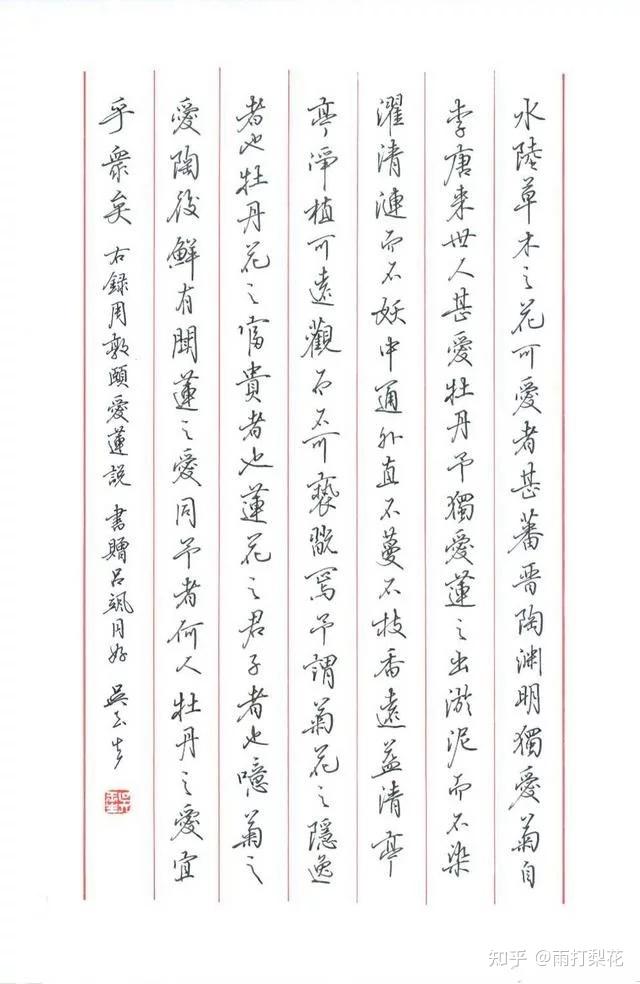 水陸草木之花可愛者甚蕃晋陶淵明獨愛菊自
李唐来世人甚愛牡丹予獨愛蓮之出淤泥而不染
濯清漣而不妖中通外直不蔓不枝香遠益清亭
亭淨植可遠觀而不可褻翫焉予謂菊花之隱逸
者也牡丹花之富貴者也蓮花之君子者也噫菊之
愛陶後鮮有聞蓮之愛同予者何人牡丹之愛宜
乎衆矣 右録周敦頤愛蓮説 書贈吕颯同好 吴玉生
知乎 @雨打梨花